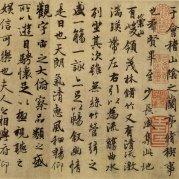 于會稽山陰之蘭亭脩禊事
也羣賢畢至少長咸集此地
有峻領茂林脩竹又有清流激
湍暎帶左右引以為流觴曲水
列坐其次雖無絲竹管弦之
盛一觴一詠亦足以暢敘幽情
是日也天朗氣清惠風和暢仰
觀宇宙之大俯察品類之盛
所以遊目騁懷足以極視聽之
娛信可樂也夫人之相與俯仰